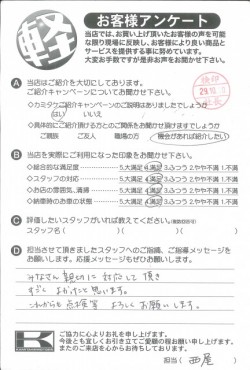 軽
お客様アンケート
当店では、お買い上げ頂いたお客様の声を可能
な限り現場に反映し、お客様により良い商品と
サービスを提供する事に努めています。
大変お手数ですが是非お声をお聞かせ下さい。
A 当店はご紹介を大切にしております。
ご紹介キャンペーンについてお聞かせ下さい。
◇カミタケご紹介キャンペーンのご説明はありましたでしょうか
はい いいえ
◇具体的にご紹介頂ける方とのご関係をお聞かせ頂けますでしょうか
ご親族 ご友人 職場の方 機会があれば紹介したい
B 当店を実際にご利用になった印象をお聞かせ下さい。
◇総合的な満足度 5.大満足 4.満足 3.ふつう 2.やや不満 1.不満
◇スタッフの対応 5.大満足 4.満足 3.ふつう 2.やや不満 1.不満
◇お店の雰囲気、清掃 5.大満足 4.満足 3.ふつう 2.やや不満 1.不満
◇納車時のお車の状態 5.大満足 4.満足 3.ふつう 2.やや不満 1.不満
C 評価したいスタッフがいれば教えてください。(複数回答可)
スタッフ名( )( )( )
D 担当させて頂きましたスタッフへのご指摘、ご指導メッセージを
お願いします。応援メッセージもぜひお願いします。
みなさん親切に対応して頂き
すごくよかったと思います。
これからも点検等よろしくお願いします。
K
ご協力に心よりお礼を申し上げます。
今後とも宜しくお引き立てご愛顧の程お願い申し上げます。
またのご来店を心からお待ちしております。
担当(西尾)